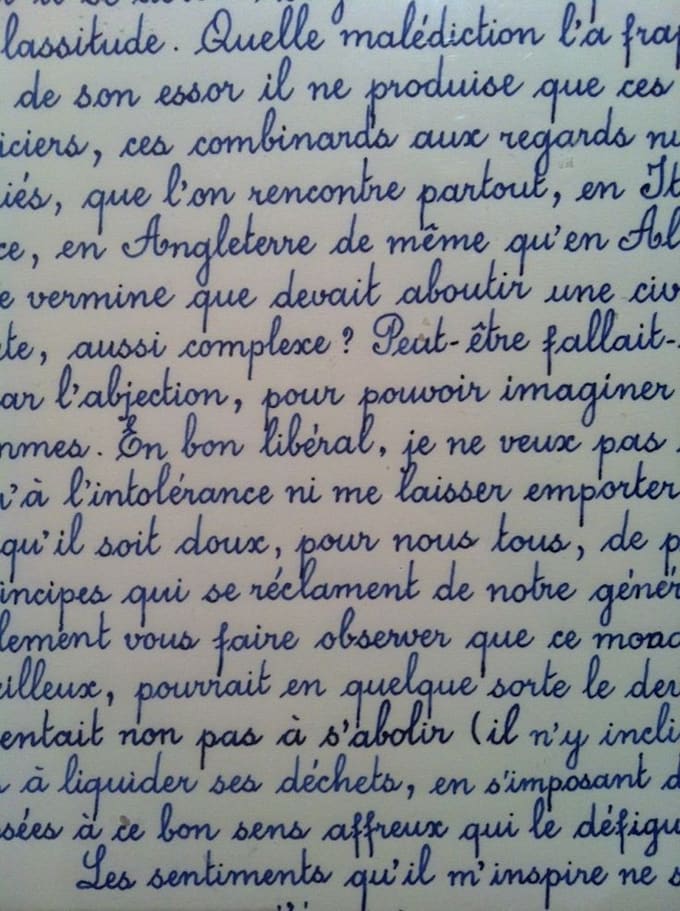 lassitude. Quelle malédiction l'a frap
de son essor il ne produise que ces
iciers, ces combinards aux regards nu
iés, que l'on rencontre partout, en It
ce, en Angleterre de même qu'en Al
e vermine que devait aboutir une civ
te, aussi complexe ? Peut-être fallait-
ar l'abjection, pour pouvoir imaginer
mmes. En bon libéral, je ne veux pas
'à l'intolérance ni me laisser emporter
qu'il soit doux, pour nous tous, de p
incipes qui se réclament de notre génér
lement vous faire observer que ce mond
eilleux, pourrait en quelque sorte le dev
entait non pas à s'abolir (il n'y incli
à liquider ses déchets, en s'imposant d
sées à ce bon sens affreux qui le défigu
Les sentiments qu'il m'inspire ne s